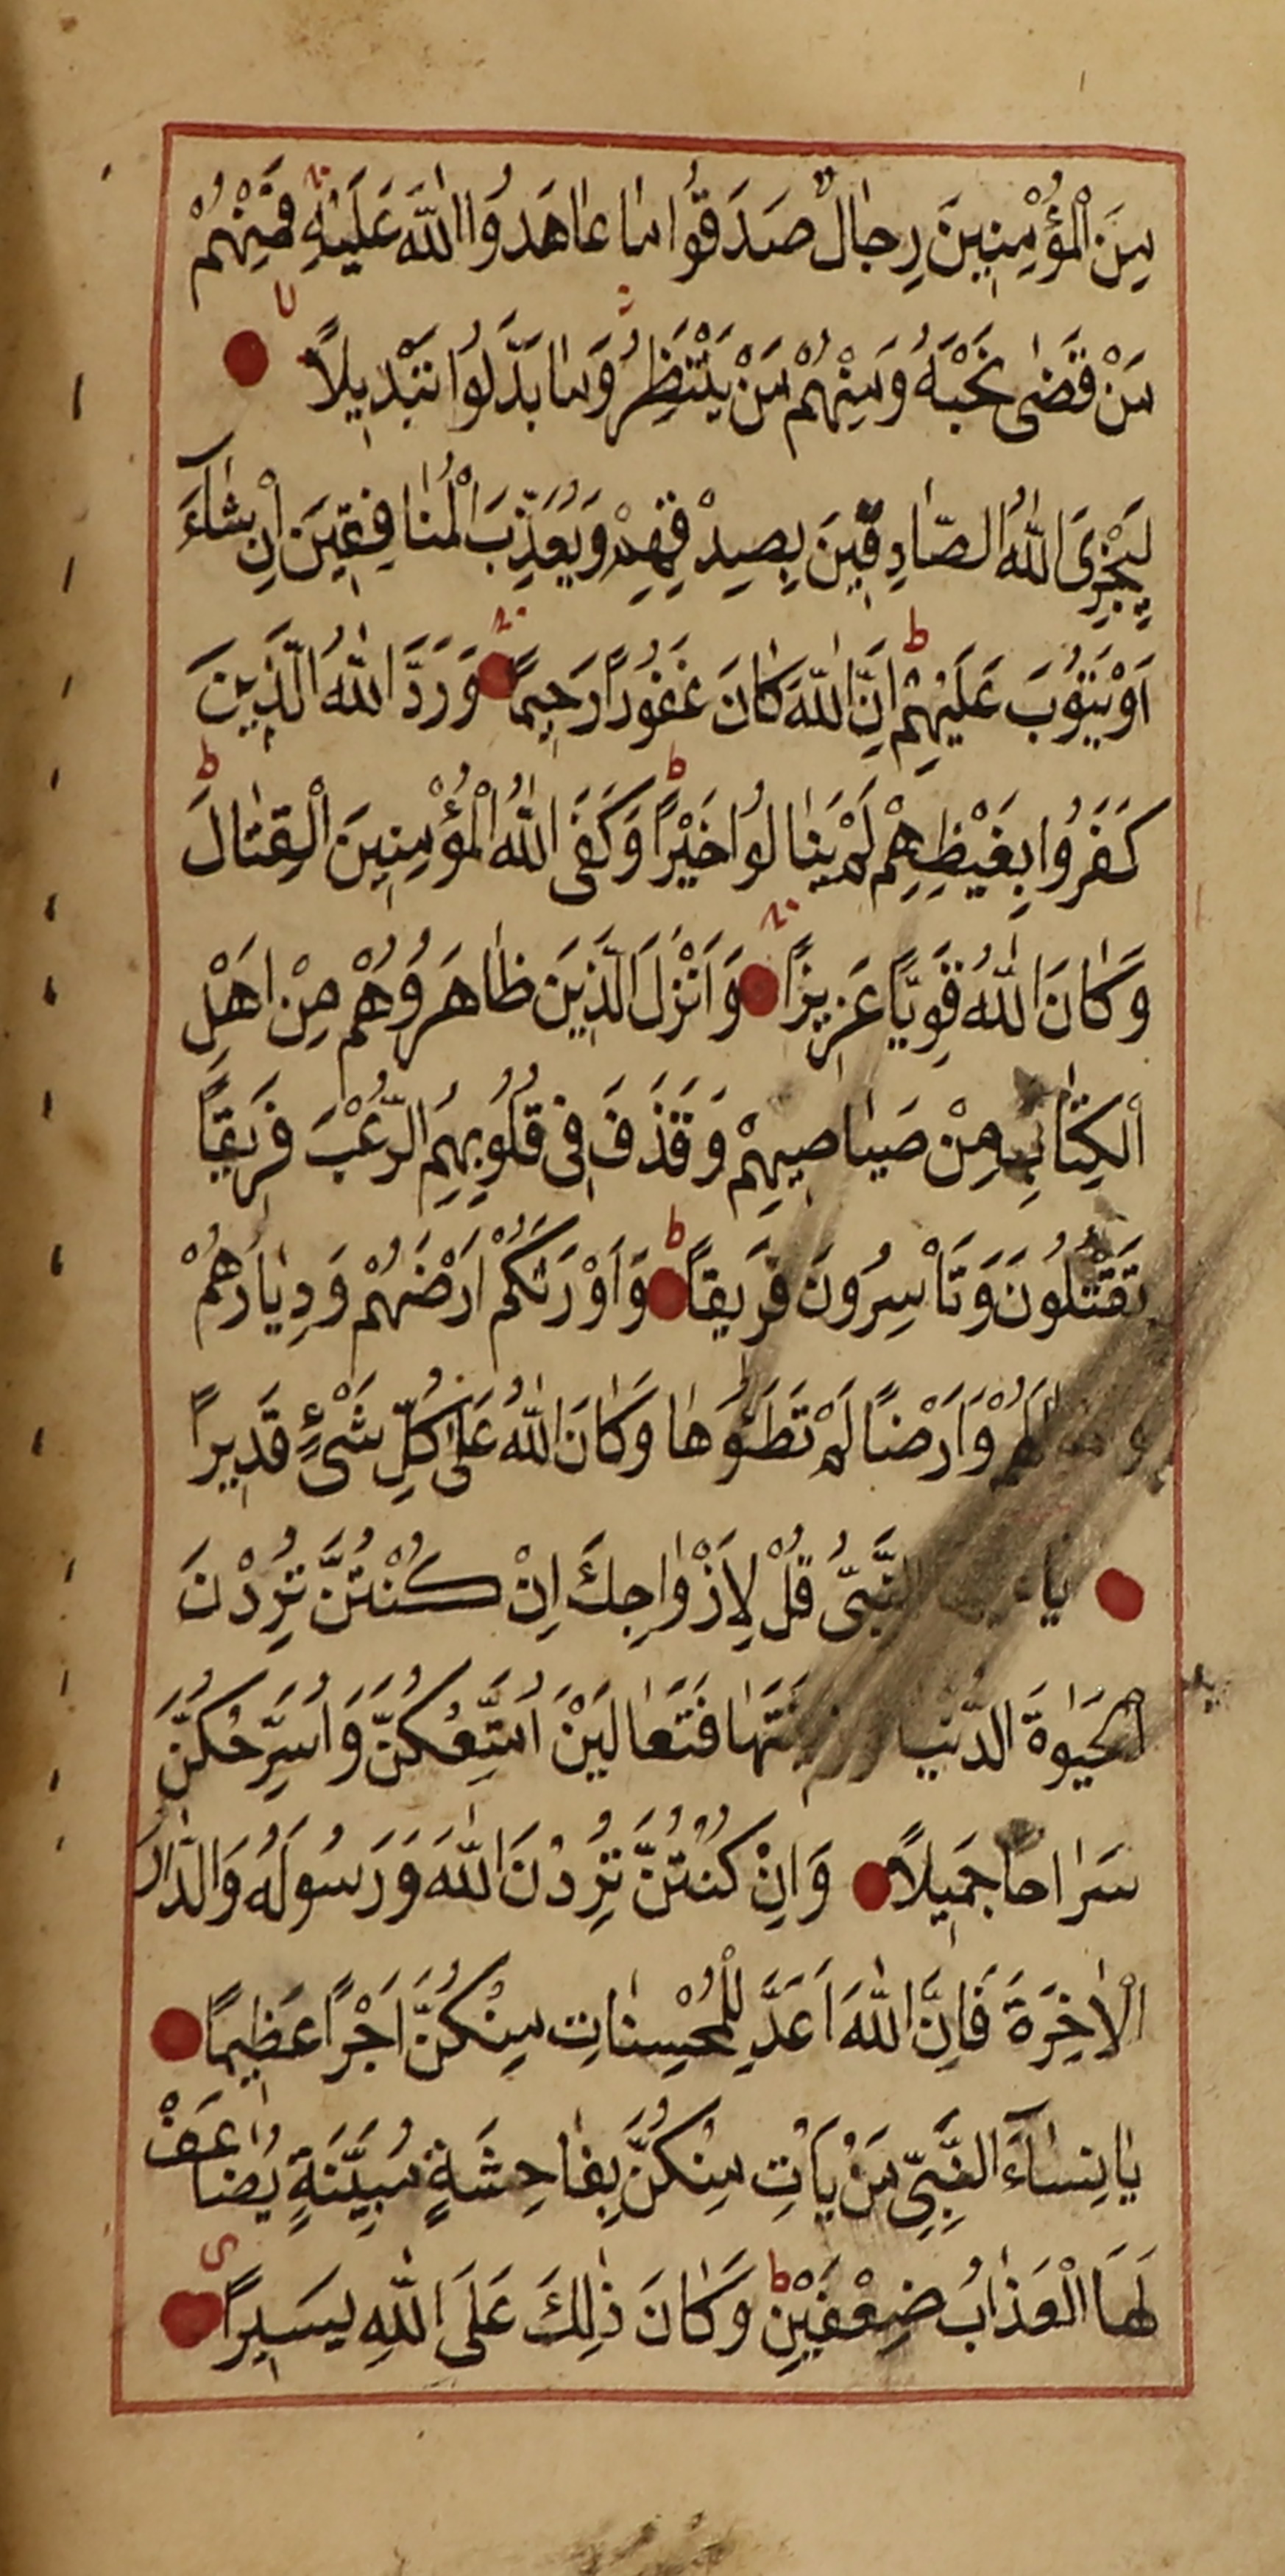 مِنَ الْمُؤْمِنِينَ رِجٰالٌ صَدَقُوا مٰا عٰاهَدُوا اللّٰهَ عَلَيْهِ فَمِنْهُمْ
مَنْ قَضٰى نَحْبَهُ وَمِنْهُمْ مَنْ يَنْتَظِرُ وَمٰا بَدَّلُوا تَبْدِيلًا
لِيَجْزِىَ اللّٰهُ الصّٰادِقِينَ بِصِدْقِهِمْ وَيُعَذِّبَ الْمُنٰافِقِينَ اِنْ شٰٓاءَ
اَوْ يَتُوبَ عَلَيْهِمْ اِنَّ اللّٰهَ كٰانَ غَفُورًا رَحِيمًا وَرَدَّ اللّٰهُ الَّذِينَ
كَفَرُوا بِغَيْظِهِمْ لَمْ يَنٰالُوا خَيْرًا وَكَفَى اللّٰهُ الْمُؤْمِنِينَ الْقِتٰالَ
وَكٰانَ اللّٰهُ قَوِيًّا عَزِيزًا وَاَنْزَلَ الَّذِينَ ظٰاهَرُوهُمْ مِنْ اَهْلِ
الْكِتٰابِ مِنْ صَيٰاصِيهِمْ وَقَذَفَ فِى قُلُوبِهِمُ الرُّعْبَ فَرِيقًا
تَقْتُلُونَ وَتَأْسِرُونَ فَرِيقًا وَاَوْرَثَكُمْ اَرْضَهُمْ وَدِيٰارَهُمْ
وَاَرْضًا لَمْ تَطَؤُهٰا وَكٰانَ اللّٰهُ عَلٰى كُلِّ شَىْءٍ قَدِيرًا
النَّبِىُّ قُلْ لِاَزْوٰاجِكَ اِنْ كُنْتُنَّ تُرِدْنَ
الْحَيٰوةَ الدُّنْيٰا فَتَعٰالَيْنَ اُمَتِّعْكُنَّ وَاُسَرِّحْكُنَّ
سَرٰاحًا جَمِيلًا وَاِنْ كُنْتُنَّ تُرِدْنَ اللّٰهَ وَرَسُولَهُ وَالدّٰارَ
الْاٰخِرَةَ فَاِنَّ اللّٰهَ اَعَدَّ لِلْمُحْسِنٰاتِ مِنْكُنَّ اَجْرًا عَظِيمًا
يٰا نِسٰٓاءَ النَّبِىِّ مَنْ يَأْتِ مِنْكُنَّ بِفٰاحِشَةٍ مُبَيِّنَةٍ يُضٰاعَفْ
لَهَا الْعَذٰابُ ضِعْفَيْنِ وَكٰانَ ذٰلِكَ عَلَى اللّٰهِ يَسِيرًا